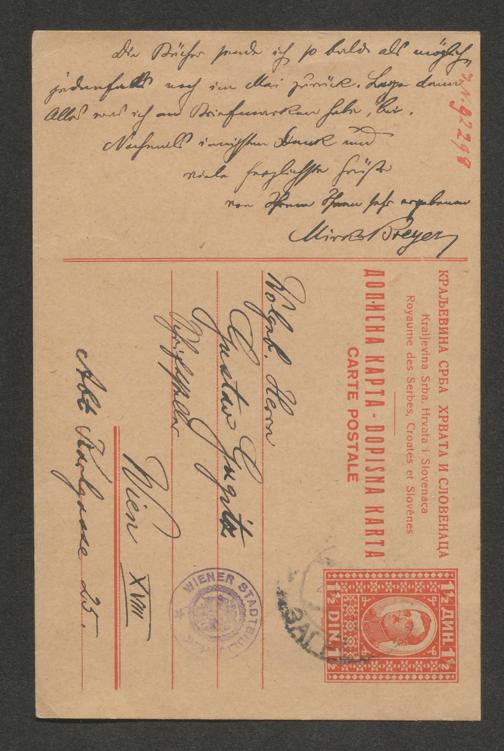 Die Bücher sende ich so bald als möglich,
jedenfalls noch im Mai zurück. Lege dann
Alles was ich an Briefmarken habe, bei.
Nochmals innigsten Dank und
viele herzlichste Grüße
von Ihrem Ihnen sehr ergebenen
Mirko Breyer
J.N. 92298
КРАЉЕВИНА СРБА ХРВАТА И СЛОВЕНАЦА
Kraljevina Srba, Hrvata i Slovenaca
Royaume des Serbes, Croates et Slovènes
ДОПИСНА КАРТА - DOPISNA KARTA
CARTE POSTALE
1½ ДИН. 1½
1½ DIN. 1½
Wolgeb. Herrn
Gustav Gugitz
Schriftsteller
Wien XVIII
Abt Karlgasse 25.
WIENER STADTBIBLIOTHEK